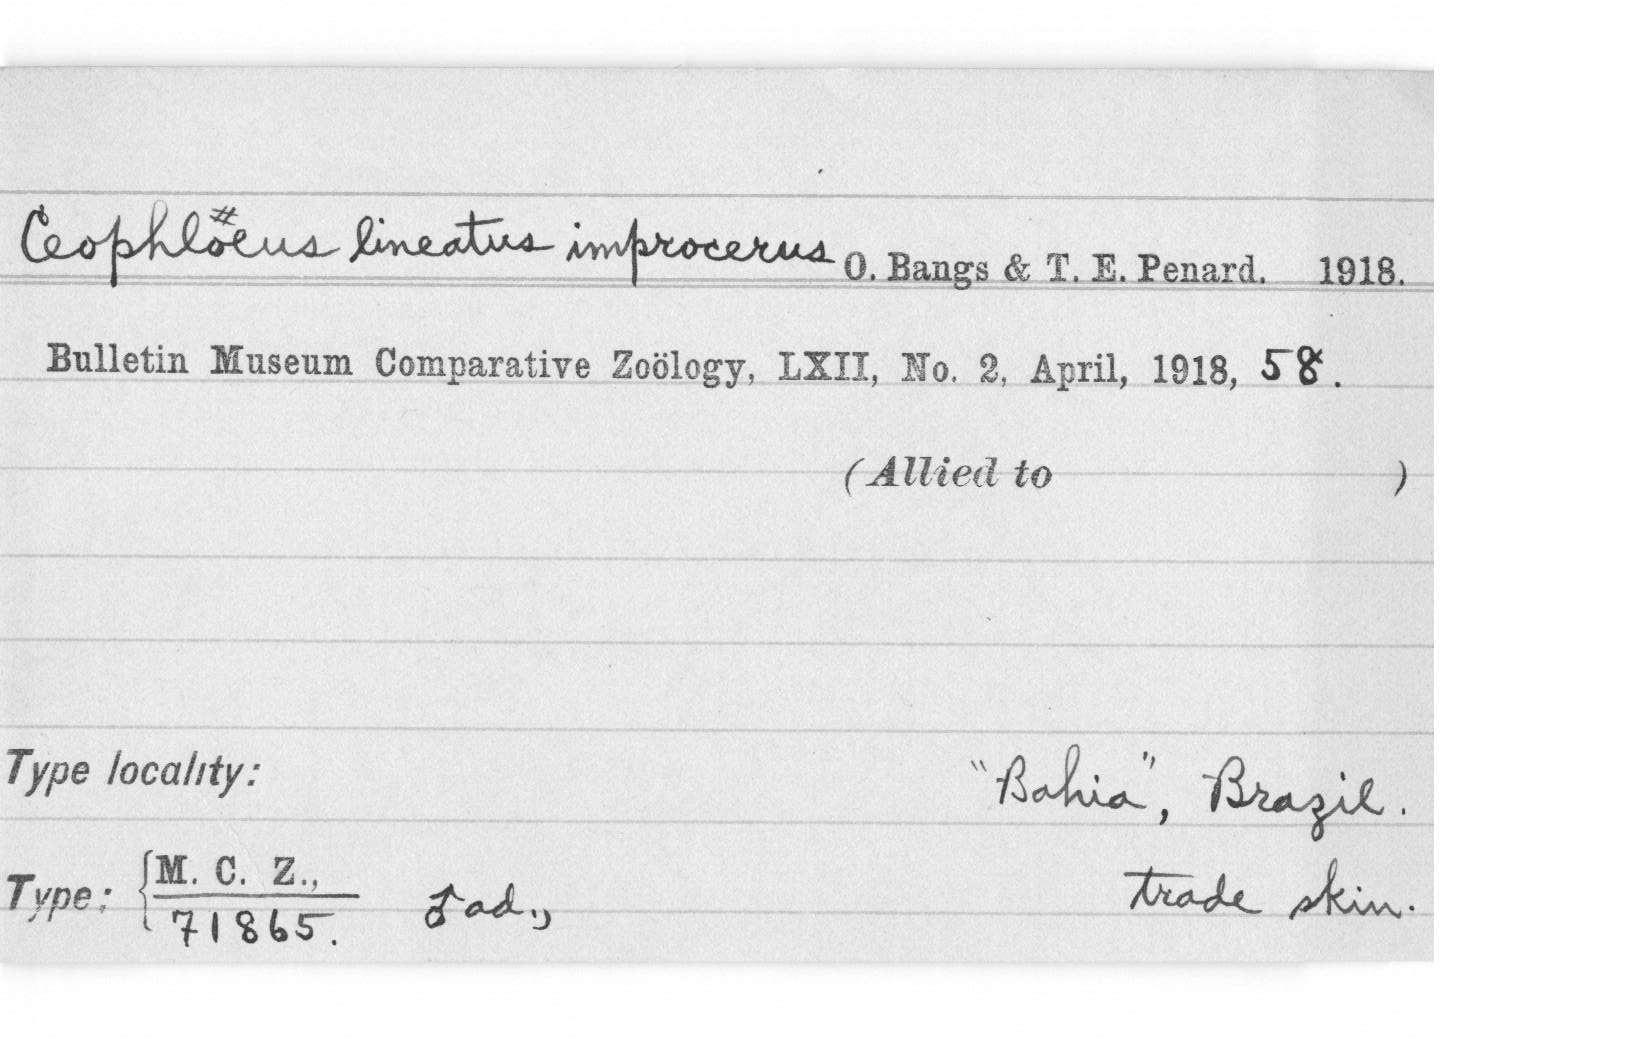 Ceophlöeus lineatus improcerus O. Bangs & T. E. Penard. 1918.
Bulletin Museum Comparative Zoölogy, LXII, No. 2, April, 1918, 58.
(Allied to )
Type locality: "Bahia", Brazil.
Type: {M. C. Z., ♂ ad., trade skin.
71865.